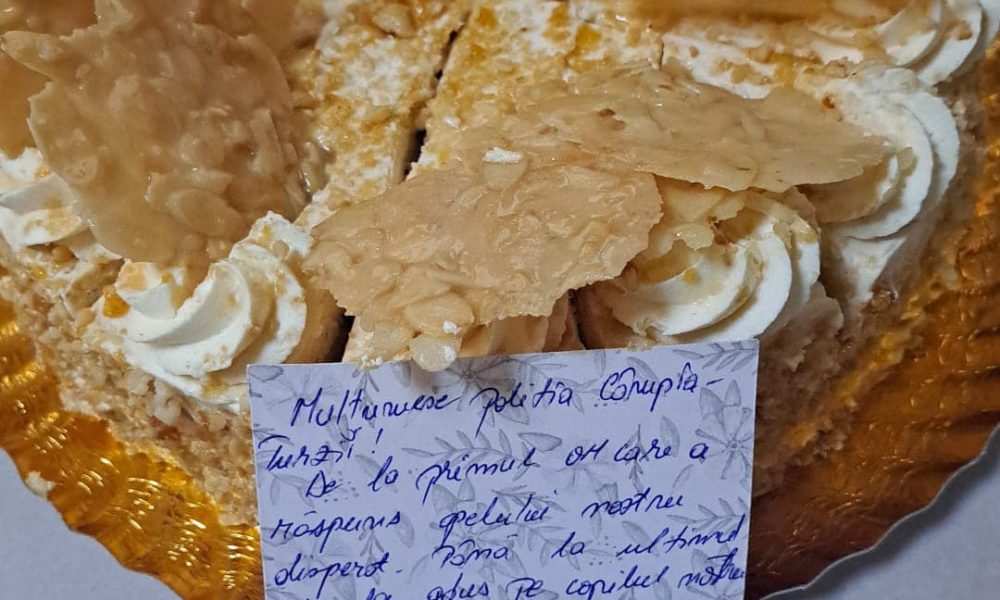 Multumesc politia Câmpia-
Turzii!
De la primul om care a
răspuns apelului nostru
disperat. Până la ultimul
adus pe copilul nostru